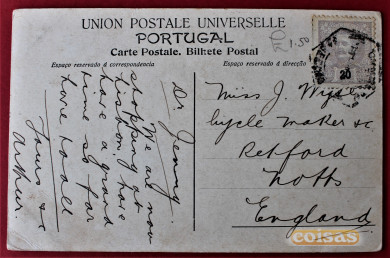 UNION POSTALE UNIVERSELLE
PORTUGAL
Carte Postale. Bilhete Postal
Espaço reservado á correspondencia
Espaço reservado á direcção
1.50
20
Dr. Jenny.
We are now
shopping at
Lisbon have
have a grand
time so far
love to all
Yours &c
Arthur.
Miss J.
Cycle maker &c
Retford
Notts
England
coisas